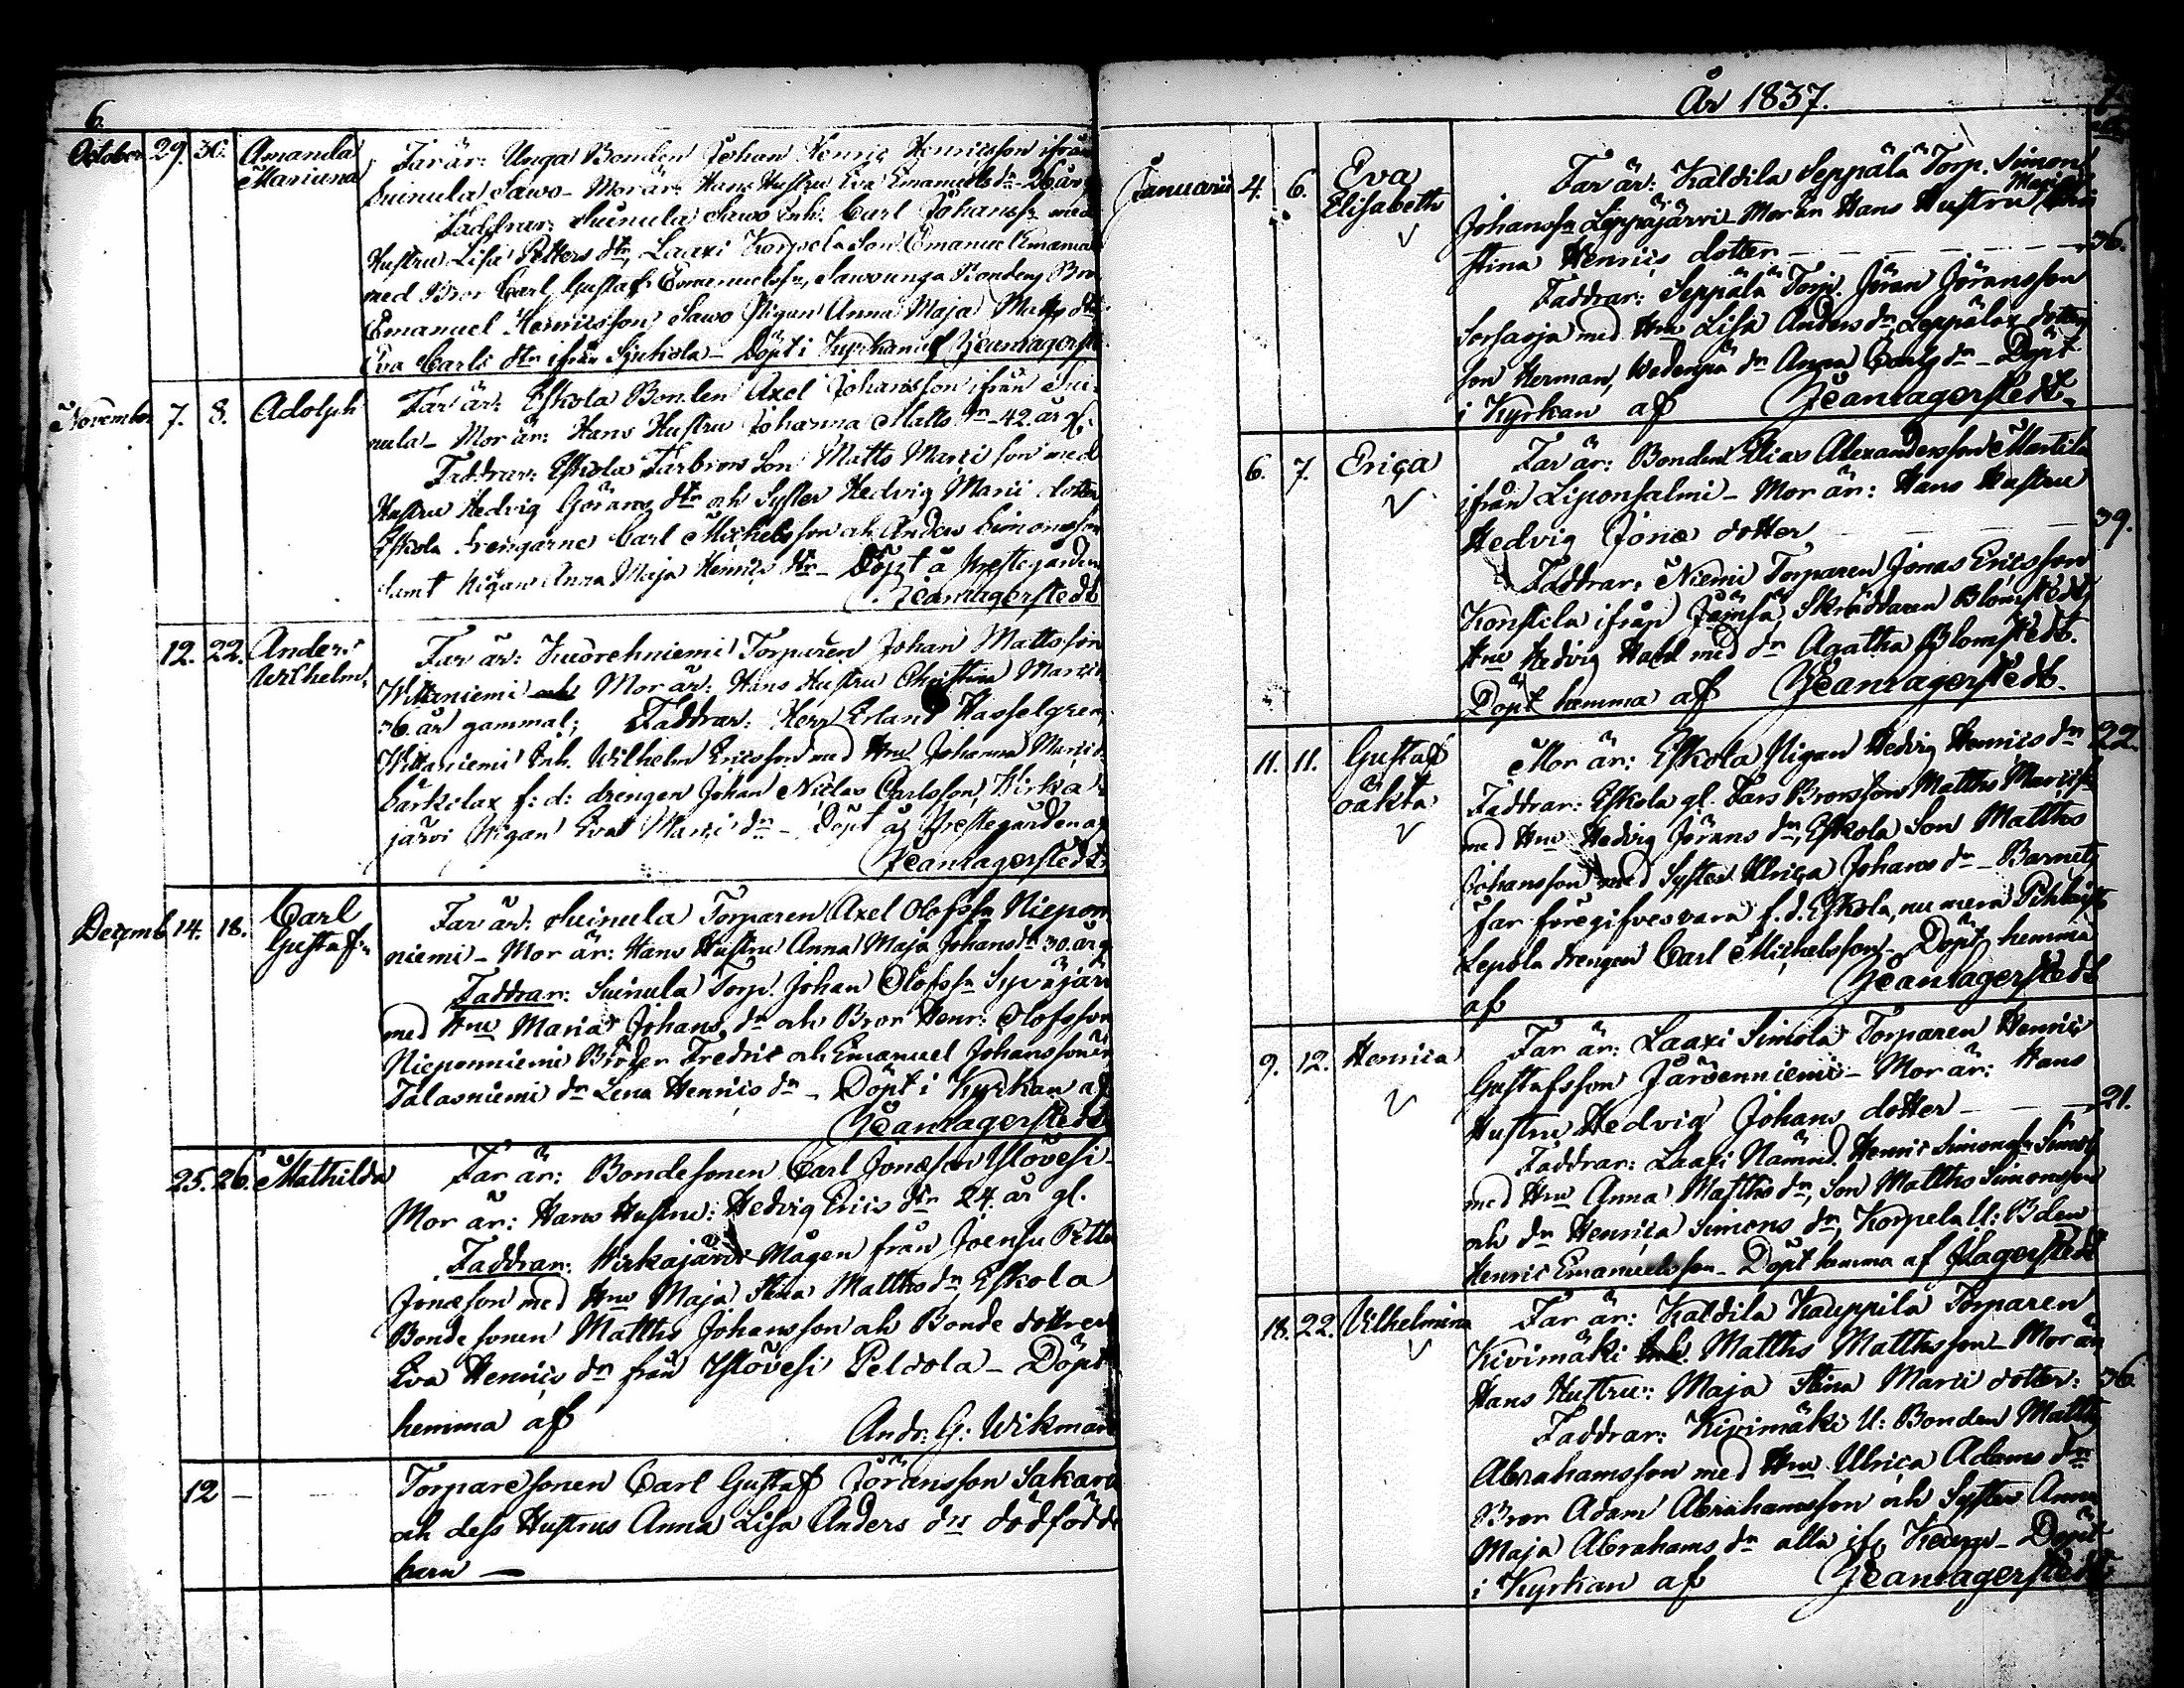 6.
October 29. 30. Amanda Mariana
Far är: Unga Bonden Johan Henric Henricsson ifrån
Suinula Sawo - Mor är: Hans Hustru Eva Emanuels dr - 26 år
Faddrar: Suinula Sawo Inh. Carl Johanss: med
Hustru Lisa Petters dtr, Laaxi Korpela Son Emanuel Emanuel
med Bror Carl Gustaf Emanuelssn, Sawo unga Bondens Bror
Emanuel Henricsson, Sawo Pigan Anna Maja Matts dtr
Eva Carls dtr ifrån - Döpt i Kyrkan af Jean Lagerstedt
November 7. 8. Adolph
Far är: Eskola Bonden Axel Johansson ifrån Sui-
nula - Mor är: Hans Hustru Johanna Matts dr - 42. år gl.
Faddrar: Eskola Farbrors Son Matts Marci son med
Hustru Hedvig Görans dtr och Syster Hedvig Marci dotter
Eskola drengarne Carl Michelsson och Anders Simonsson
samt Pigan Anna Maja Henrics dtr - Döpt å Prestegården
Jean Lagerstedt
12. 22. Anders Wilhelm,
Far är: Kuorehniemi Torparen Johan Mattsson
Wittaniemi och Mor är: Hans Hustru Christina Marci
36. år gammal; Faddrar: Herr Erland Hasselgren,
Wittaniemi Inh. Wilhelm Ericsson med Hru Johanna Marci
Särkilax f: d: drengen Johan Niclas Carlsson, Kirka-
järvi Pigan Eva Marci dr - Döpt å Prestegården af
Jean Lagerstedt
Decemb 14. 18. Carl Gustaf
Far är: Suinula Torparen Axel Olofssn Niepon-
niemi - Mor är: Hans Hustru Anna Maja Johans dr 30. år g
Faddrar: Suinula Torp. Johan Olofssn Syväjär
med Hru Maria Johans dr och Bror Henr: Olofsson
Nieponniemi Bröder Fredric och Emanuel Johanssöner
Talasniemi dr Lena Henrics dr - Döpt i Kyrkan af
Jean Lagerstedt
25. 26. Mathilda
Far är: Bondesonen Carl Jonæson Ylövesi -
Mor är: Hans Hustru: Hedvig Erics dtr 24. år gl.
Faddrar: Kirkajärvi Mågen från Joensu Pette
Jonæson med Hru Maja Stina Matths dr, Eskola
Bonde sonen Matths Johansson och Bonde dottren
Eva Henrics dr från Ylövesi Peldola - Döpt
hemma af Andr: G: Wikman
12 -
Torparesonen Carl Gustaf Jöransson Sakari
och dess Hustrus Anna Lisa Anders drs dödfödde
barn -
År 1837.
Januarii 4. 6. Eva Elisabeth
Far är: Kaldila Seppälä Torp. Simon
Johanssn Leppäjärvi - Mor är Hans Hustru Maja
stina Henrics dotter - 36.
Faddrar: Seppälä Torp. Jöran Jöransson
Sorsaoja med Hru Lisa Anders dr, Seppälax dotter
son Herman, Wedenpä dr Anna Carls dr - Döpt
i Kyrkan af Jean Lagerstedt.
6. 7. Erica
Far är: Bonden Elias Alexandersson Martila
ifrån Liponsalmi - Mor är: Hans Hustru
Hedvig Jonæ dotter 39.
Faddrar: Niemi Torparen Jonas Ericsson
Konstila ifrån Jämsä, Skräddaren Blomstedt,
Hru Hedvig med dr Agatha Blomstedt.
Döpt hemma af Jean Lagerstedt.
11. 11. Gustaf oäkta
Mor är: Eskola Pigan Hedvig Henrics dr 22.
Faddrar: Eskola gl. Fars Brorson Matths Marcis
med Hru Hedvig Jörans dr, Eskola Son Matths
Johansson med Syster Ulrica Johans dr - Barnets
far föregifves vara f. d. Eskola, nu mera
Lepola drengen Carl Michelsson - Döpt hemma
af Jean Lagerstedt
9. 12. Henrica
Far är: Laaxi Simola Torparen Henric
Gustafsson Järvenniemi - Mor är: Hans
Hustru Hedvig Johans dotter - 21.
Faddrar: Laaxi Nämnd. Henric Simonssn Simol
med Hru Anna Matths dr, son Matths Simonsson
och dr Henrica Simons dr, Korpela U: Bden
Henric Emanuelsson - Döpt hemma af JLagerstedt
18. 22. Vilhelmina
Far är: Kaldila Kauppila Torparen
Kivimäki Inh. Matths Matthsson - Mor är
Hans Hustru: Maja Stina Marci dotter: 36.
Faddrar: Kivimäki U: Bonden Matths
Abrahamsson med Hru Ulrica Adams dr
Bror Adam Abrahamsson och Syster Anna
Maja Abrahams dr alla ifr. - Döpt
i Kyrkan af Jean Lagerstedt